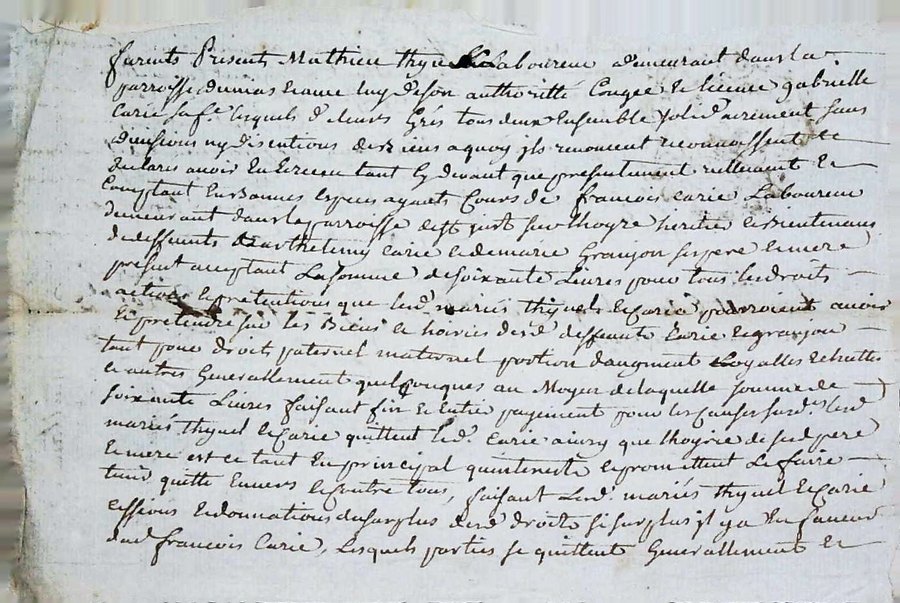 furents Presents Mathieu thyuel Laboureur demeurant dans la
parroisse de mias et avec luy de son authoritté Congée et licence gabrielle
Carie sa fe. lesquels de leurs Grés tous deux Ensemble solidairement sans
divisions ny discutions de biens a quoy ils renoncent reconnoissent et
declares avoir Eu et receu tant cy devant que presentement reellement et
Comptant En bonnes especes ayants Cours de françois Carie Laboureur
demeurant dans la parroisse de st just sur lhoyre heritier et bientenans
de deffunts Barthelemy Carie et de marie Granjon ses pere et mere
present acceptant La somme de soixante Livres pour tous les droits
actions et pretentions que lesd. mariés thyuel et Carie pourroient avoir
et pretendre sur les Biens et hoiries desd deffunts Carie et granjon
tant pour droit paternel maternel portion daugment Loyalles echuttes
et autres Generallement quelconques au Moyen de laquelle somme de
soixante Livres faisant fin et Entier payement pour les causes susd. lesd
mariés thyuel et Carie quittent led. Carie ainsy que lhoyrie de sesd pere
et mere est ce tant En principal quinterests et promettent Le faire
tenir quitte Envers et contre tous, faisant Lesd. mariés thyuel et Carie
cessions et donnations du surplus desd droits si surplus il y a En faveur
dud françois Carie, Lesquels parties se quittent Generallement et